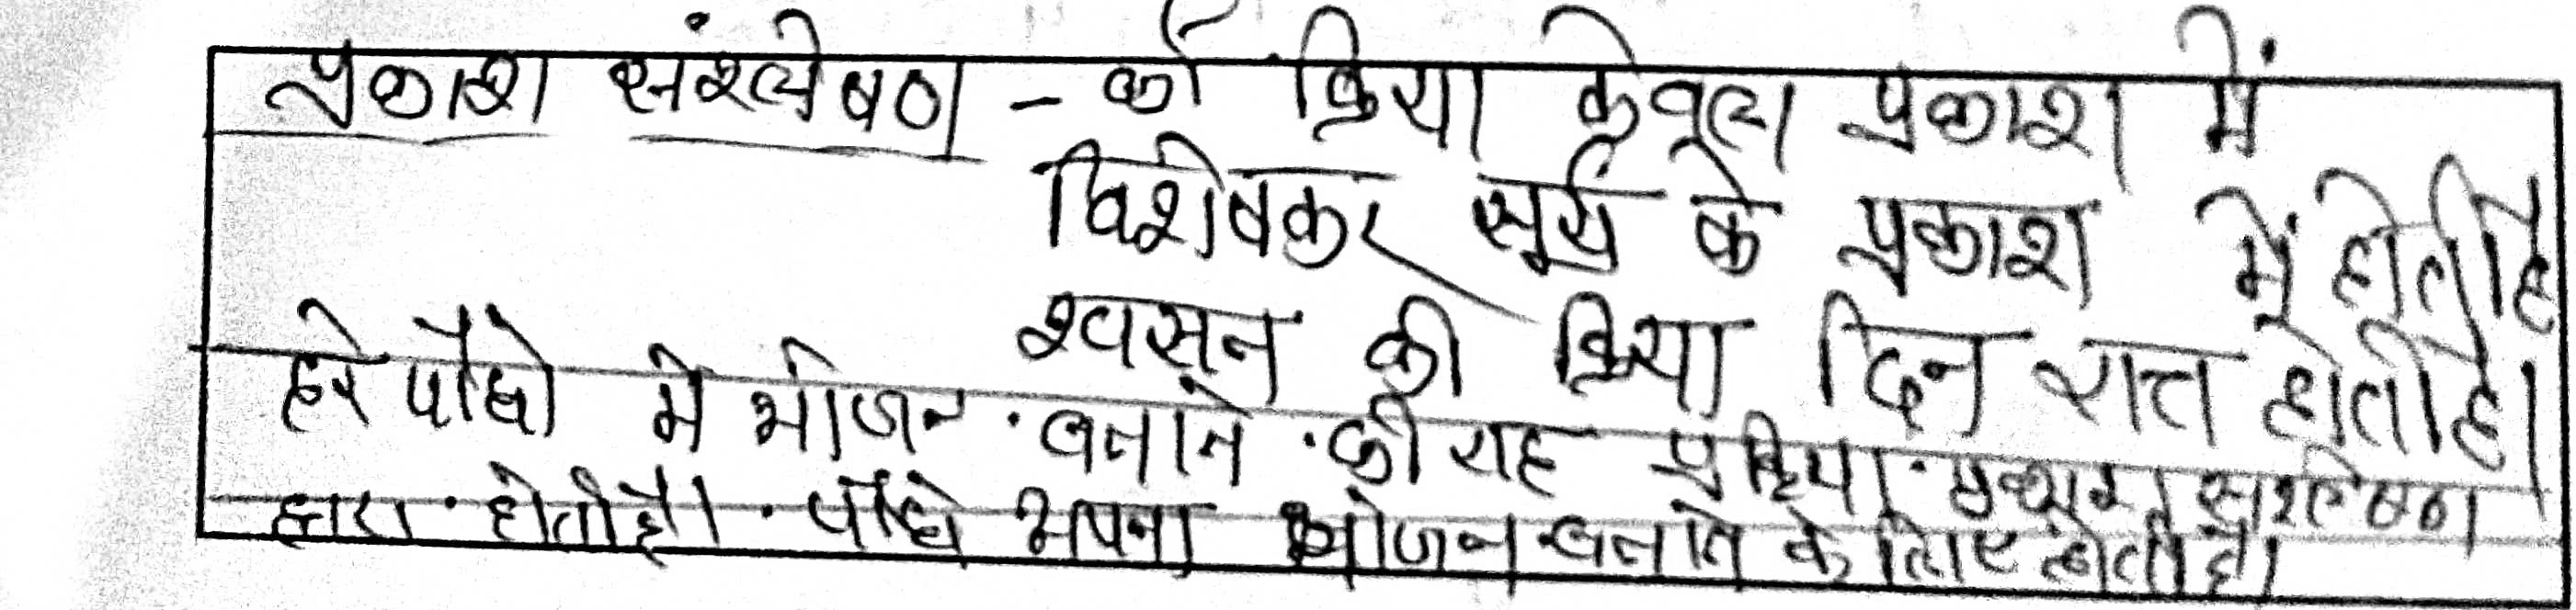 प्रकाश संश्लेषण - की क्रिया केवल प्रकाश में
विशेषकर सूर्य के प्रकाश में होती है
श्वसन की क्रिया दिन रात होती है।
हरे पौधो मे भोजन बनाने की यह प्रक्रिया प्रकाश संश्लेषण
द्वारा होती है। पौधे अपना भोजन बनाने के लिए होती है।